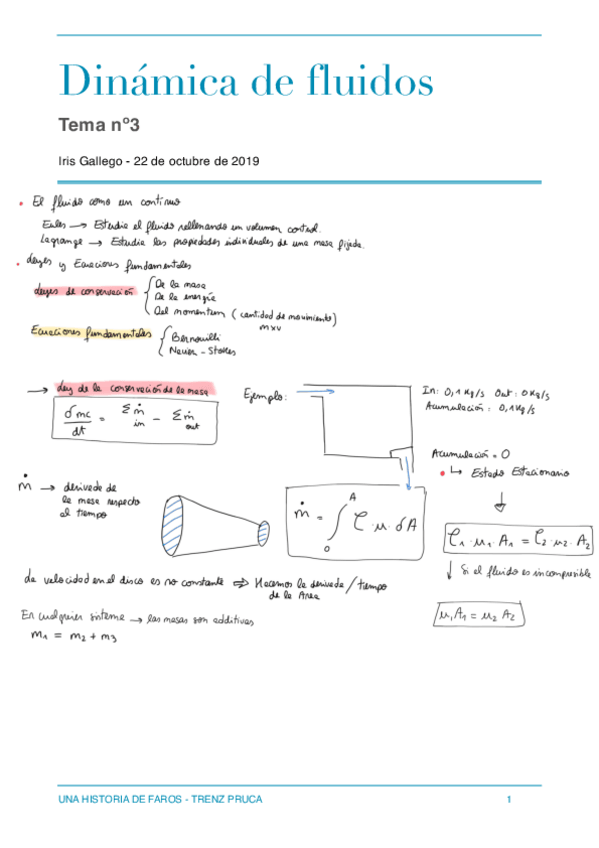 Dinámica de fluidos
Tema nº3
Iris Gallego - 22 de octubre de 2019
• El fluido como un continuo
Euler → Estudia el fluido rellenando un volumen control.
Lagrange → Estudia las propiedades individuales de una masa fijada.
• Leyes y Ecuaciones fundamentales
Leyes de conservación { De la masa
De la energía
Del momentum (cantidad de movimiento)
m×v
Ecuaciones fundamentales { Bernouilli
Navier - Stokes
→ Ley de la conservación de la masa
δmc/dt = Σṁ in − Σṁ out
Ejemplo:
In: 0,1 kg/s Out: 0 kg/s
Acumulación: 0,1 kg/s
Acumulación = 0
• ↳ Estado Estacionario
ṁ → derivada de
la masa respecto
al tiempo
ṁ = ∫₀ᴬ ρ·u·δA
ρ₁·u₁·A₁ = ρ₂·u₂·A₂
↓ Si el fluido es incompresible
u₁A₁ = u₂A₂
La velocidad en el disco es no constante ⇒ Hacemos la derivada / tiempo
de la Área
En cualquier sistema → las masas son additivas
m₁ = m₂ + m₃
UNA HISTORIA DE FAROS - TRENZ PRUCA 1